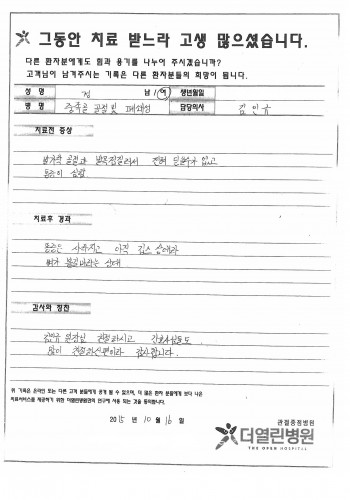 그동안 치료 받느라 고생 많으셨습니다.
다른 환자분에게도 힘과 용기를 나누어 주시겠습니까?
고객님이 남겨주시는 기록은 다른 환자분들의 희망이 됩니다.
성 명 정 남 / 여 생년월일
병 명 중족골 골절 및 담당의사 김인규
치료전 증상
발가락 골절과 없고
통증이 심함
치료후 경과
통증은 사라지고 아직 깁스 상태라
상태
감사와 칭찬
원장님 친절하시고 간호사님들도
많이 감사합니다.
위 기록은 온라인 또는 다른 고객 분들에게 공개 될 수 있으며, 더 많은 환자 분들에게 보다 나은
의료서비스를 제공하기 위한 더열린병원만의 연구에 사용 되는 것을 동의합니다.
2015 년 10 월 16 일
관절중점병원
더열린병원
THE OPEN HOSPITAL